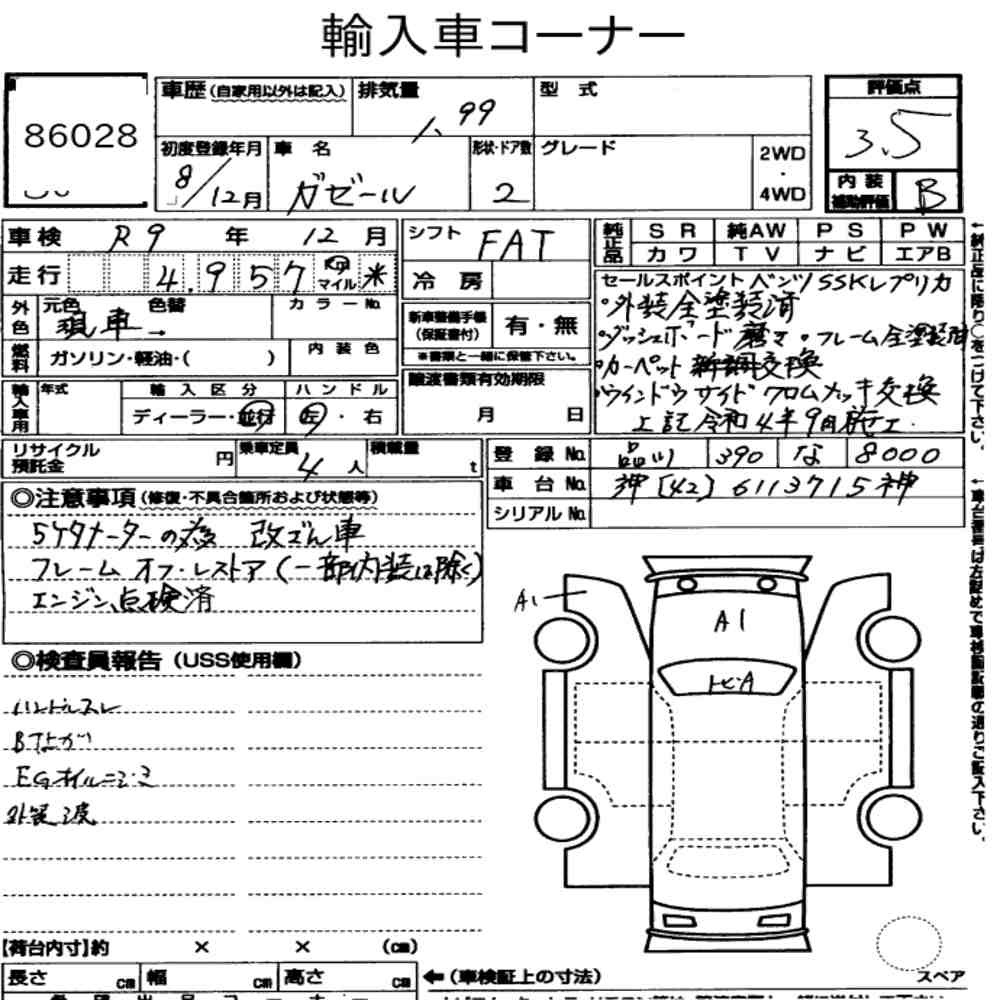 輸入車コーナー
86028
車歴(自家用以外は記入)
排気量
1.99
型式
評価点
3.5
初度登録年月
8/12月
車名
ガゼール
形状・ドア数
2
グレード
2WD
・
4WD
内装
補助評価
B
車検 R9年12月
シフト FAT
純正品
SR 純AW PS PW
カワ TV ナビ エアB
走行 4.957 マイル 米
冷房
セールスポイント ベンツSSKレプリカ
・外装全塗装済
・ダッシュボード 磨き ・フレーム全塗装済
・カーペット新調交換
・ウインドウサイド クロムメッキ交換
上記令和4年9月施工.
外色
元色 色替 カラーNo.
現車→
新車整備手帳
(保証書付)
有・無
※書類と一緒に保管下さい。
燃料
ガソリン・軽油・( )
内装色
譲渡書類有効期限
月 日
輸入車用
年式
輸入区分
ディーラー・並行
ハンドル
左・右
リサイクル
預託金
円
乗車定員
4人
積載量
t
登録No. 品川 390 な 8000
車台No. 神[42]6113715神
シリアルNo.
◎注意事項(修復・不具合箇所および状態等)
5ケタメーターの為 改ざん車
フレームオフ・レストア(一部内装は除く)
エンジン点検済
◎検査員報告(USS使用欄)
ハンドルスレ
B下よゴ
EGオイルニジミ
A1
A1
トビA
【荷台内寸】約 × × (cm)
長さ cm 幅 cm 高さ cm
←(車検証上の寸法)
スペア
←純正品に限り○をつけて下さい。
←車台番号は方詰めで車検証記載の通りご記入下さい。